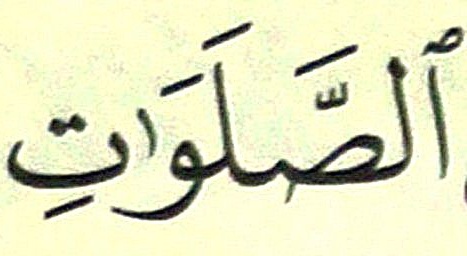 ٱلصَّلَوَٰتِ